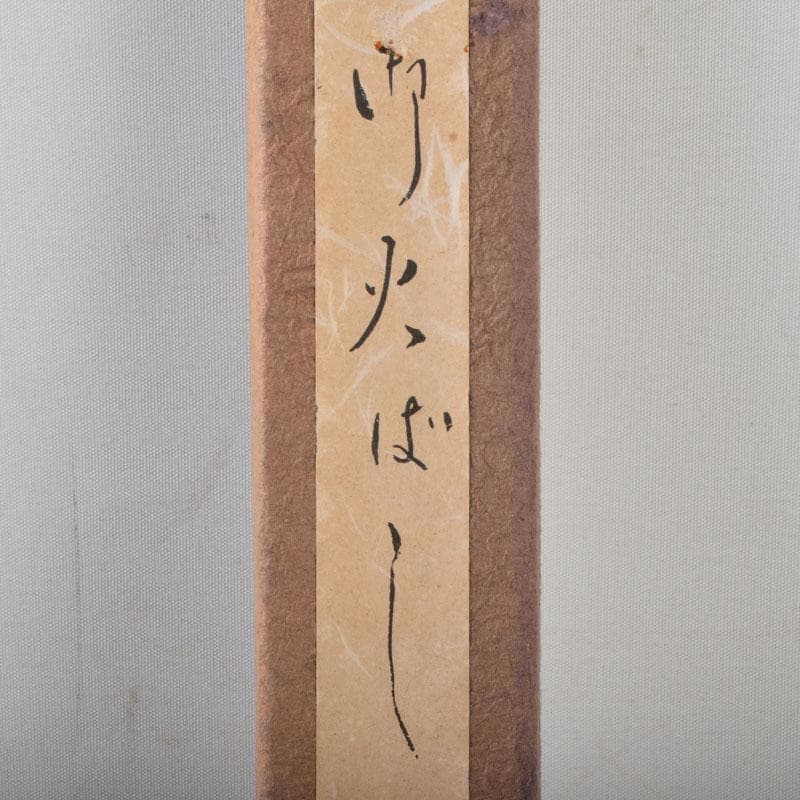 御火ばし